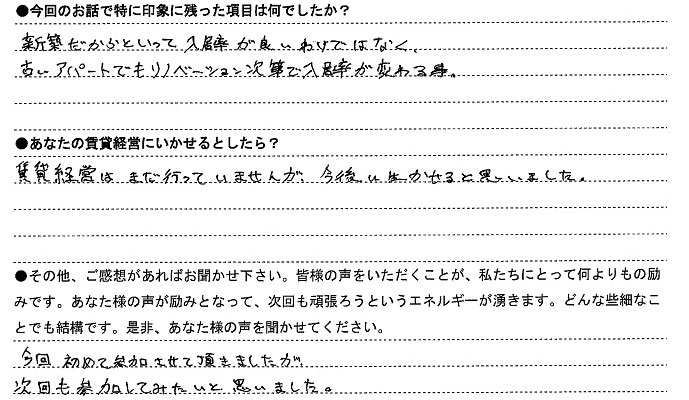 ●今回のお話で特に印象に残った項目は何でしたか？
新築だからといって入居率が良いわけではなく、
古いアパートでもリノベーション次第で入居率が変わる事。
●あなたの賃貸経営にいかせるとしたら？
賃貸経営はまだ行っていませんが、今後に生かせると思いました。
●その他、ご感想があればお聞かせ下さい。皆様の声をいただくことが、私たちにとって何よりもの励
みです。あなた様の声が励みとなって、次回も頑張ろうというエネルギーが湧きます。どんな些細なこ
とでも結構です。是非、あなた様の声を聞かせてください。
今回初めて参加させて頂きましたが、
次回も参加してみたいと思いました。